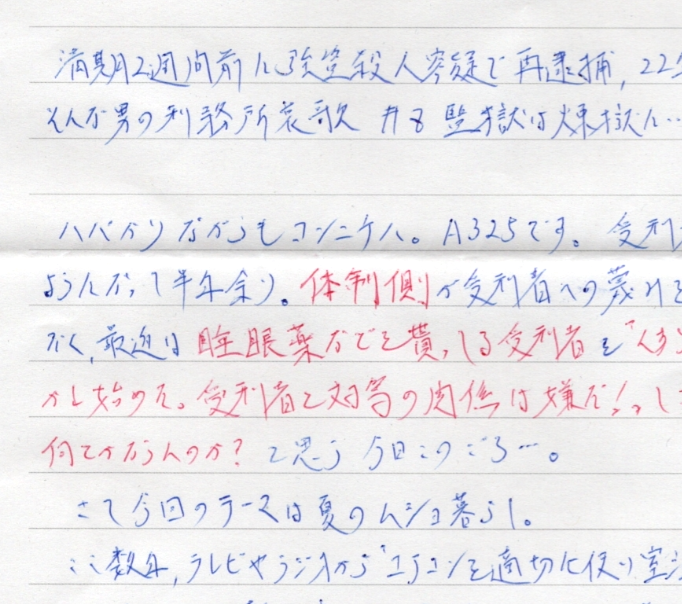 満期2週間前に強盗殺人容疑で再逮捕,22年
そんな男の刑務所哀歌 #8 監獄は煉獄に…
ハバかりながらもコンニチハ。A325です。受刑
ようになって半年余り。体制側が受刑者への蔑みを
なく、最近は睡眠薬などを貰ってる受刑者を「人
かし始めた。受刑者と対等の関係は嫌だ!って
何てかならんのか?と思う今日このごろ…。
さて今回のテーマは夏のムショ暮らし。
ここ数年,テレビやラジオから「エアコンを適切に使い室